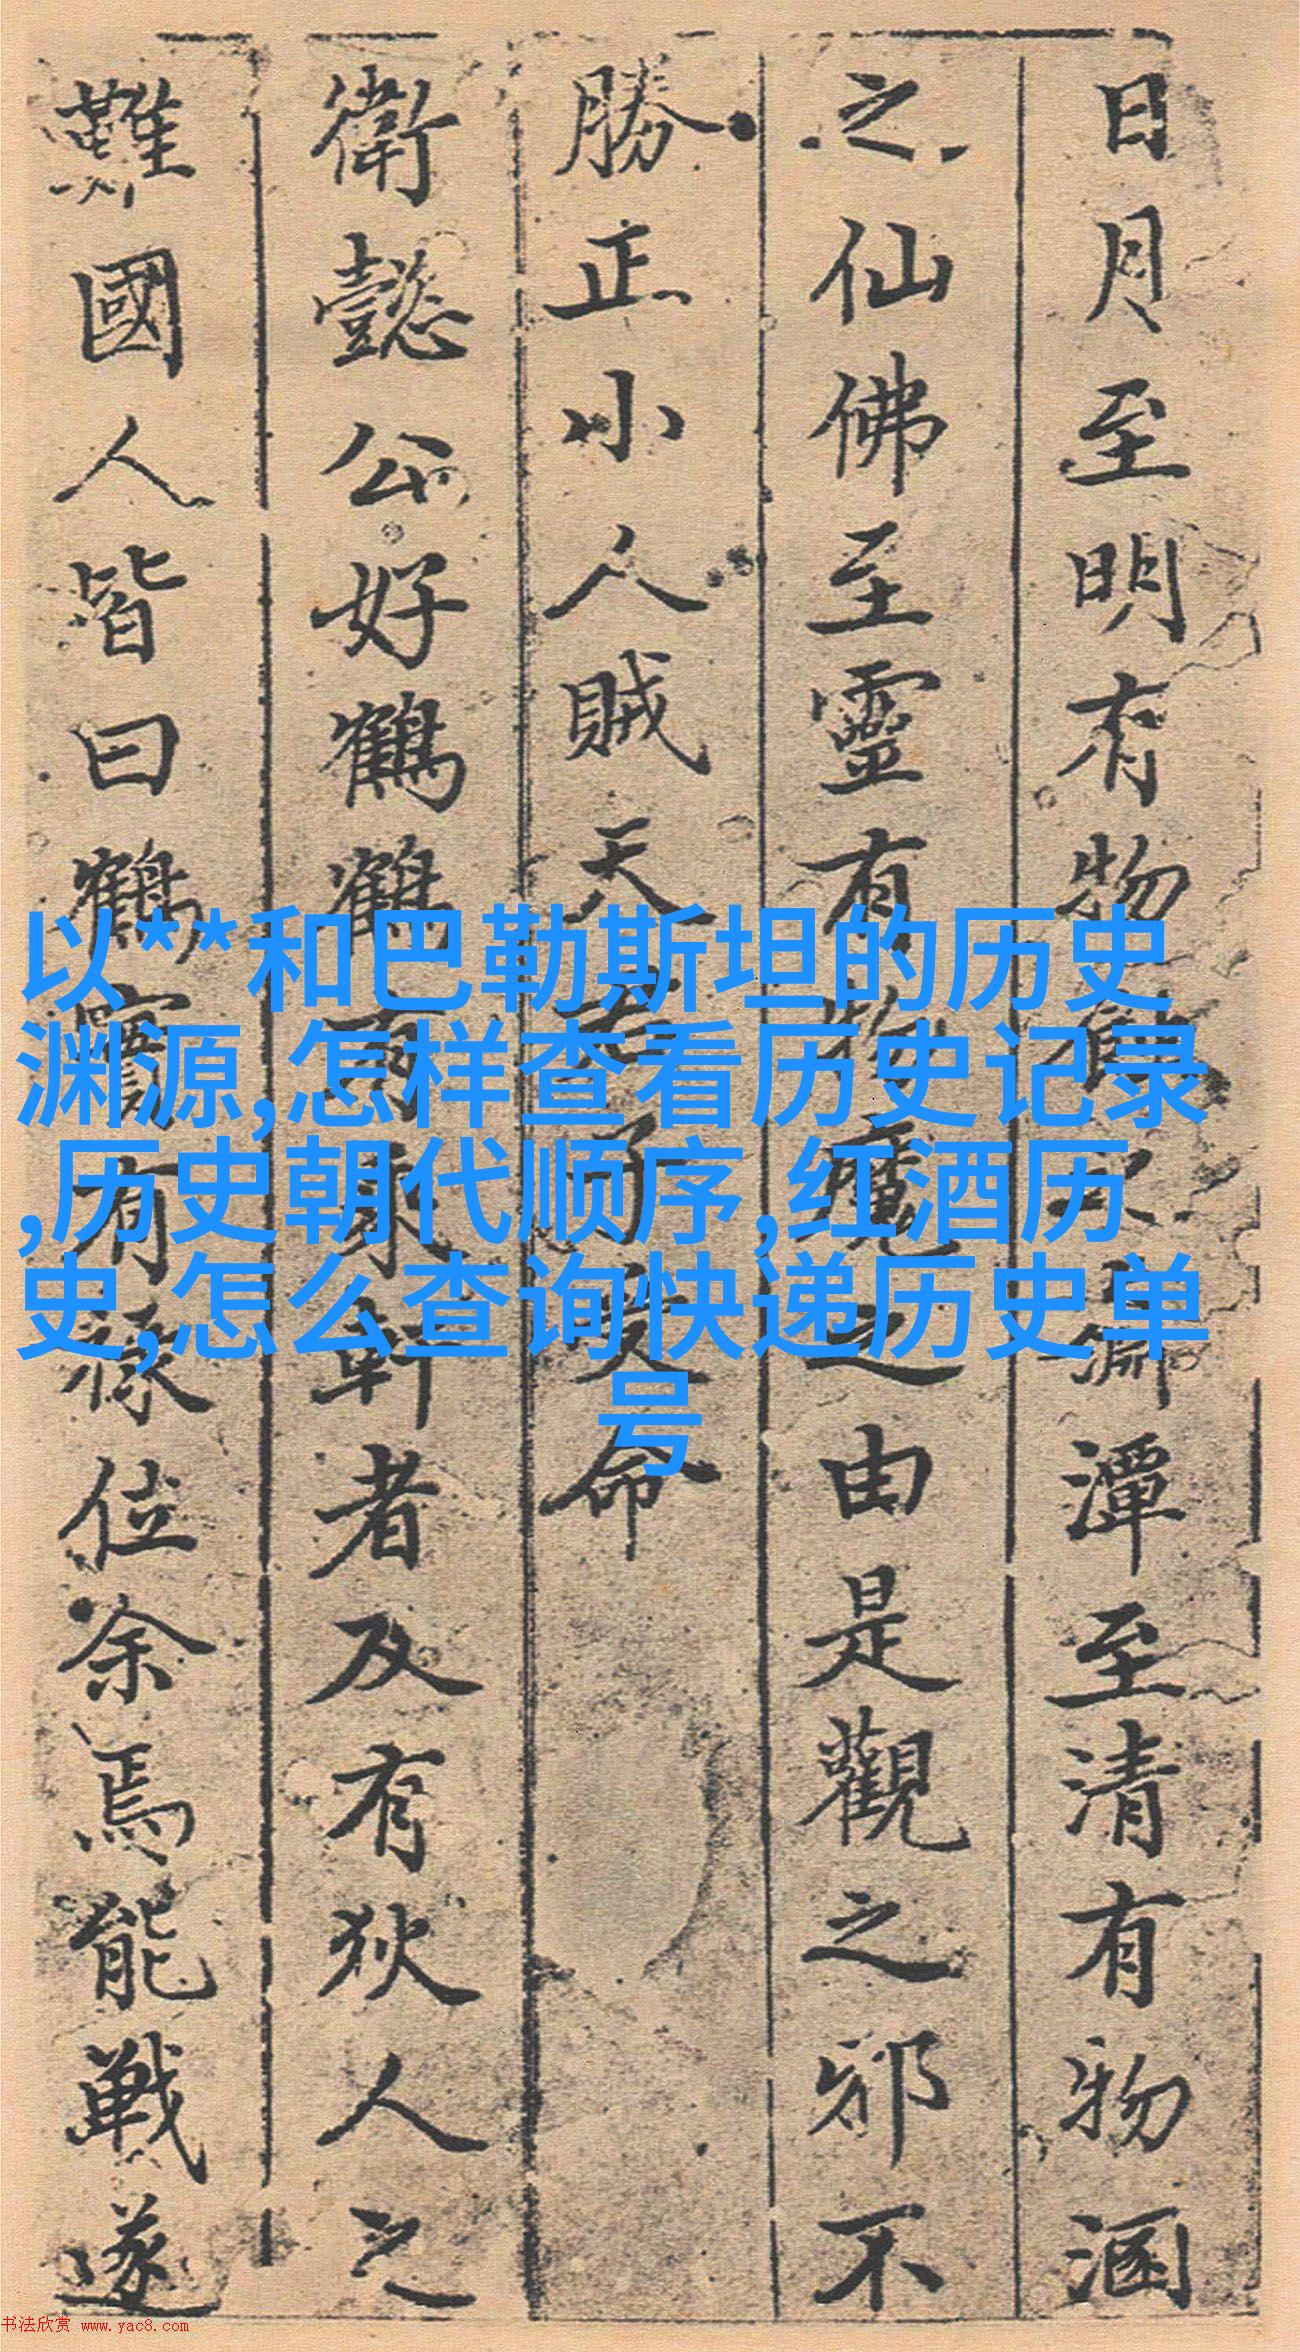 日月至明有物蝕之淵潭至清有物涵
之仙佛至靈有物魔之由是觀之邪不
勝正小人賊天君子受命
衛懿公好鶴鶴有乘軒者及有狄人之
難國人皆曰鶴實有祿位余焉能戰遂
以**和巴勒斯坦的历史
渊源,怎样查看历史记录
,历史朝代顺序,红酒历
史,怎么查询快递历史单
号
书法欣赏 www.yac8.com